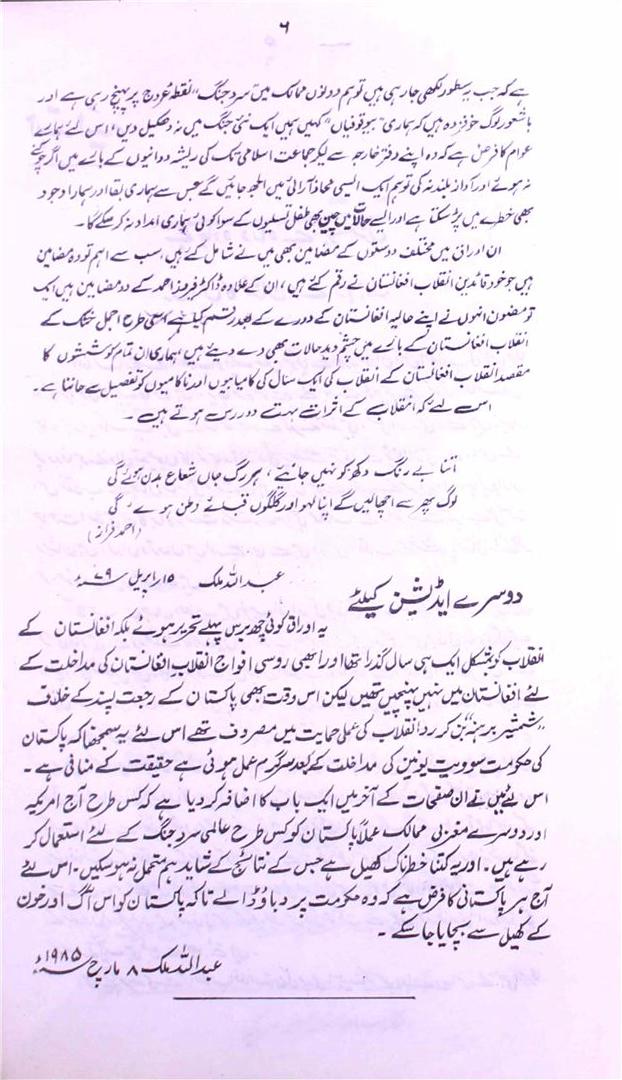 ۶
ہے کہ جب یہ سطور لکھی جا رہی ہیں تو ہم دونوں ممالک میں سرد جنگ "نقطۂ عروج پر پہنچ رہی ہے اور
باشعور لوگ خوفزدہ ہیں کہ ہماری "بیوقوفیاں" کہیں ہمیں ایک نئی جنگ میں نہ دھکیل دیں، اس لئے ہمارے
عوام کا فرض ہے کہ وہ اپنے دفتر خارجہ سے لیکر جماعت اسلامی تک کی ریشہ دوانیوں کے بارے میں اگر چوکنے
نہ ہوئے اور آواز بلند نہ کی تو ہم ایک ایسی محاذ آرائی میں الجھ جائیں گے جس سے ہماری بقا اور ہمارا وجود
بھی خطرے میں پڑ سکتا ہے اور ایسے حالات میں چین بھی طفل تسلیوں کے سوا کوئی ہماری امداد نہ کر سکے گا۔
ان اوراق میں مختلف دوستوں کے مضامین بھی میں نے شامل کئے ہیں، سب سے اہم تو وہ مضامین
ہیں جو خود قائدین انقلاب افغانستان نے رقم کئے ہیں، ان کے علاوہ ڈاکٹر فیروز احمد کے دو مضامین ہیں ایک
تو مضمون انہوں نے اپنے حالیہ افغانستان کے دورے کے بعد رقم کیا ہے اسی طرح اجمل خٹک کے
انقلاب افغانستان کے بارے میں چشم دید حالات بھی دے دیئے ہیں، ہماری ان تمام کوششوں کا
مقصد انقلاب افغانستان کے انقلاب کی ایک سال کی کامیابیوں اور ناکامیوں کو تفصیل سے جاننا ہے۔
اس لئے کہ انقلاب کے اثرات بہت دور رس ہوتے ہیں۔
اتنا بے رنگ دکھ کو نہیں جانتے، ہر رگ جاں شعاع بدن ہوئے گی
لوگ پھر سے اچھالیں گے اپنا لہو اور گلگوں قبائے وطن ہوئے گی
(احمد فراز)
عبداللہ ملک ۱۵ اپریل ۷۹ء
دوسرے ایڈیشن کیلئے
یہ اوراق کوئی چھ برس پہلے تحریر ہوئے بلکہ افغانستان کے
انقلاب کو بمشکل ایک ہی سال گذرا تھا اور ابھی روسی افواج انقلاب افغانستان کی مداخلت کے
لئے افغانستان میں نہیں پہنچیں تھیں لیکن اس وقت بھی پاکستان کے رجعت پسند کے خلاف
"شمشیر برہنہ" بن کر رد انقلاب کی عملی حمایت میں مصروف تھے اس لئے یہ سمجھنا کہ پاکستان
کی حکومت سوویت یونین کی مداخلت کے بعد سرگرم عمل ہوئی ہے حقیقت کے منافی ہے۔
اس لئے میں نے ان صفحات کے آخر میں ایک باب کا اضافہ کر دیا ہے کہ کس طرح آج امریکہ
اور دوسرے مغربی ممالک عملاً پاکستان کو کس طرح عالمی سرد جنگ کے لئے استعمال کر
رہے ہیں۔ اور یہ کتنا خطرناک کھیل ہے جس کے نتائج کے شاید ہم متحمل نہ ہو سکیں۔ اس لئے
آج ہر پاکستانی کا فرض ہے کہ وہ حکومت پر دباؤ ڈالے تاکہ پاکستان کو اس آگ اور خون
کے کھیل سے بچایا جا سکے۔
عبداللہ ملک ۸ مارچ ۱۹۸۵ء